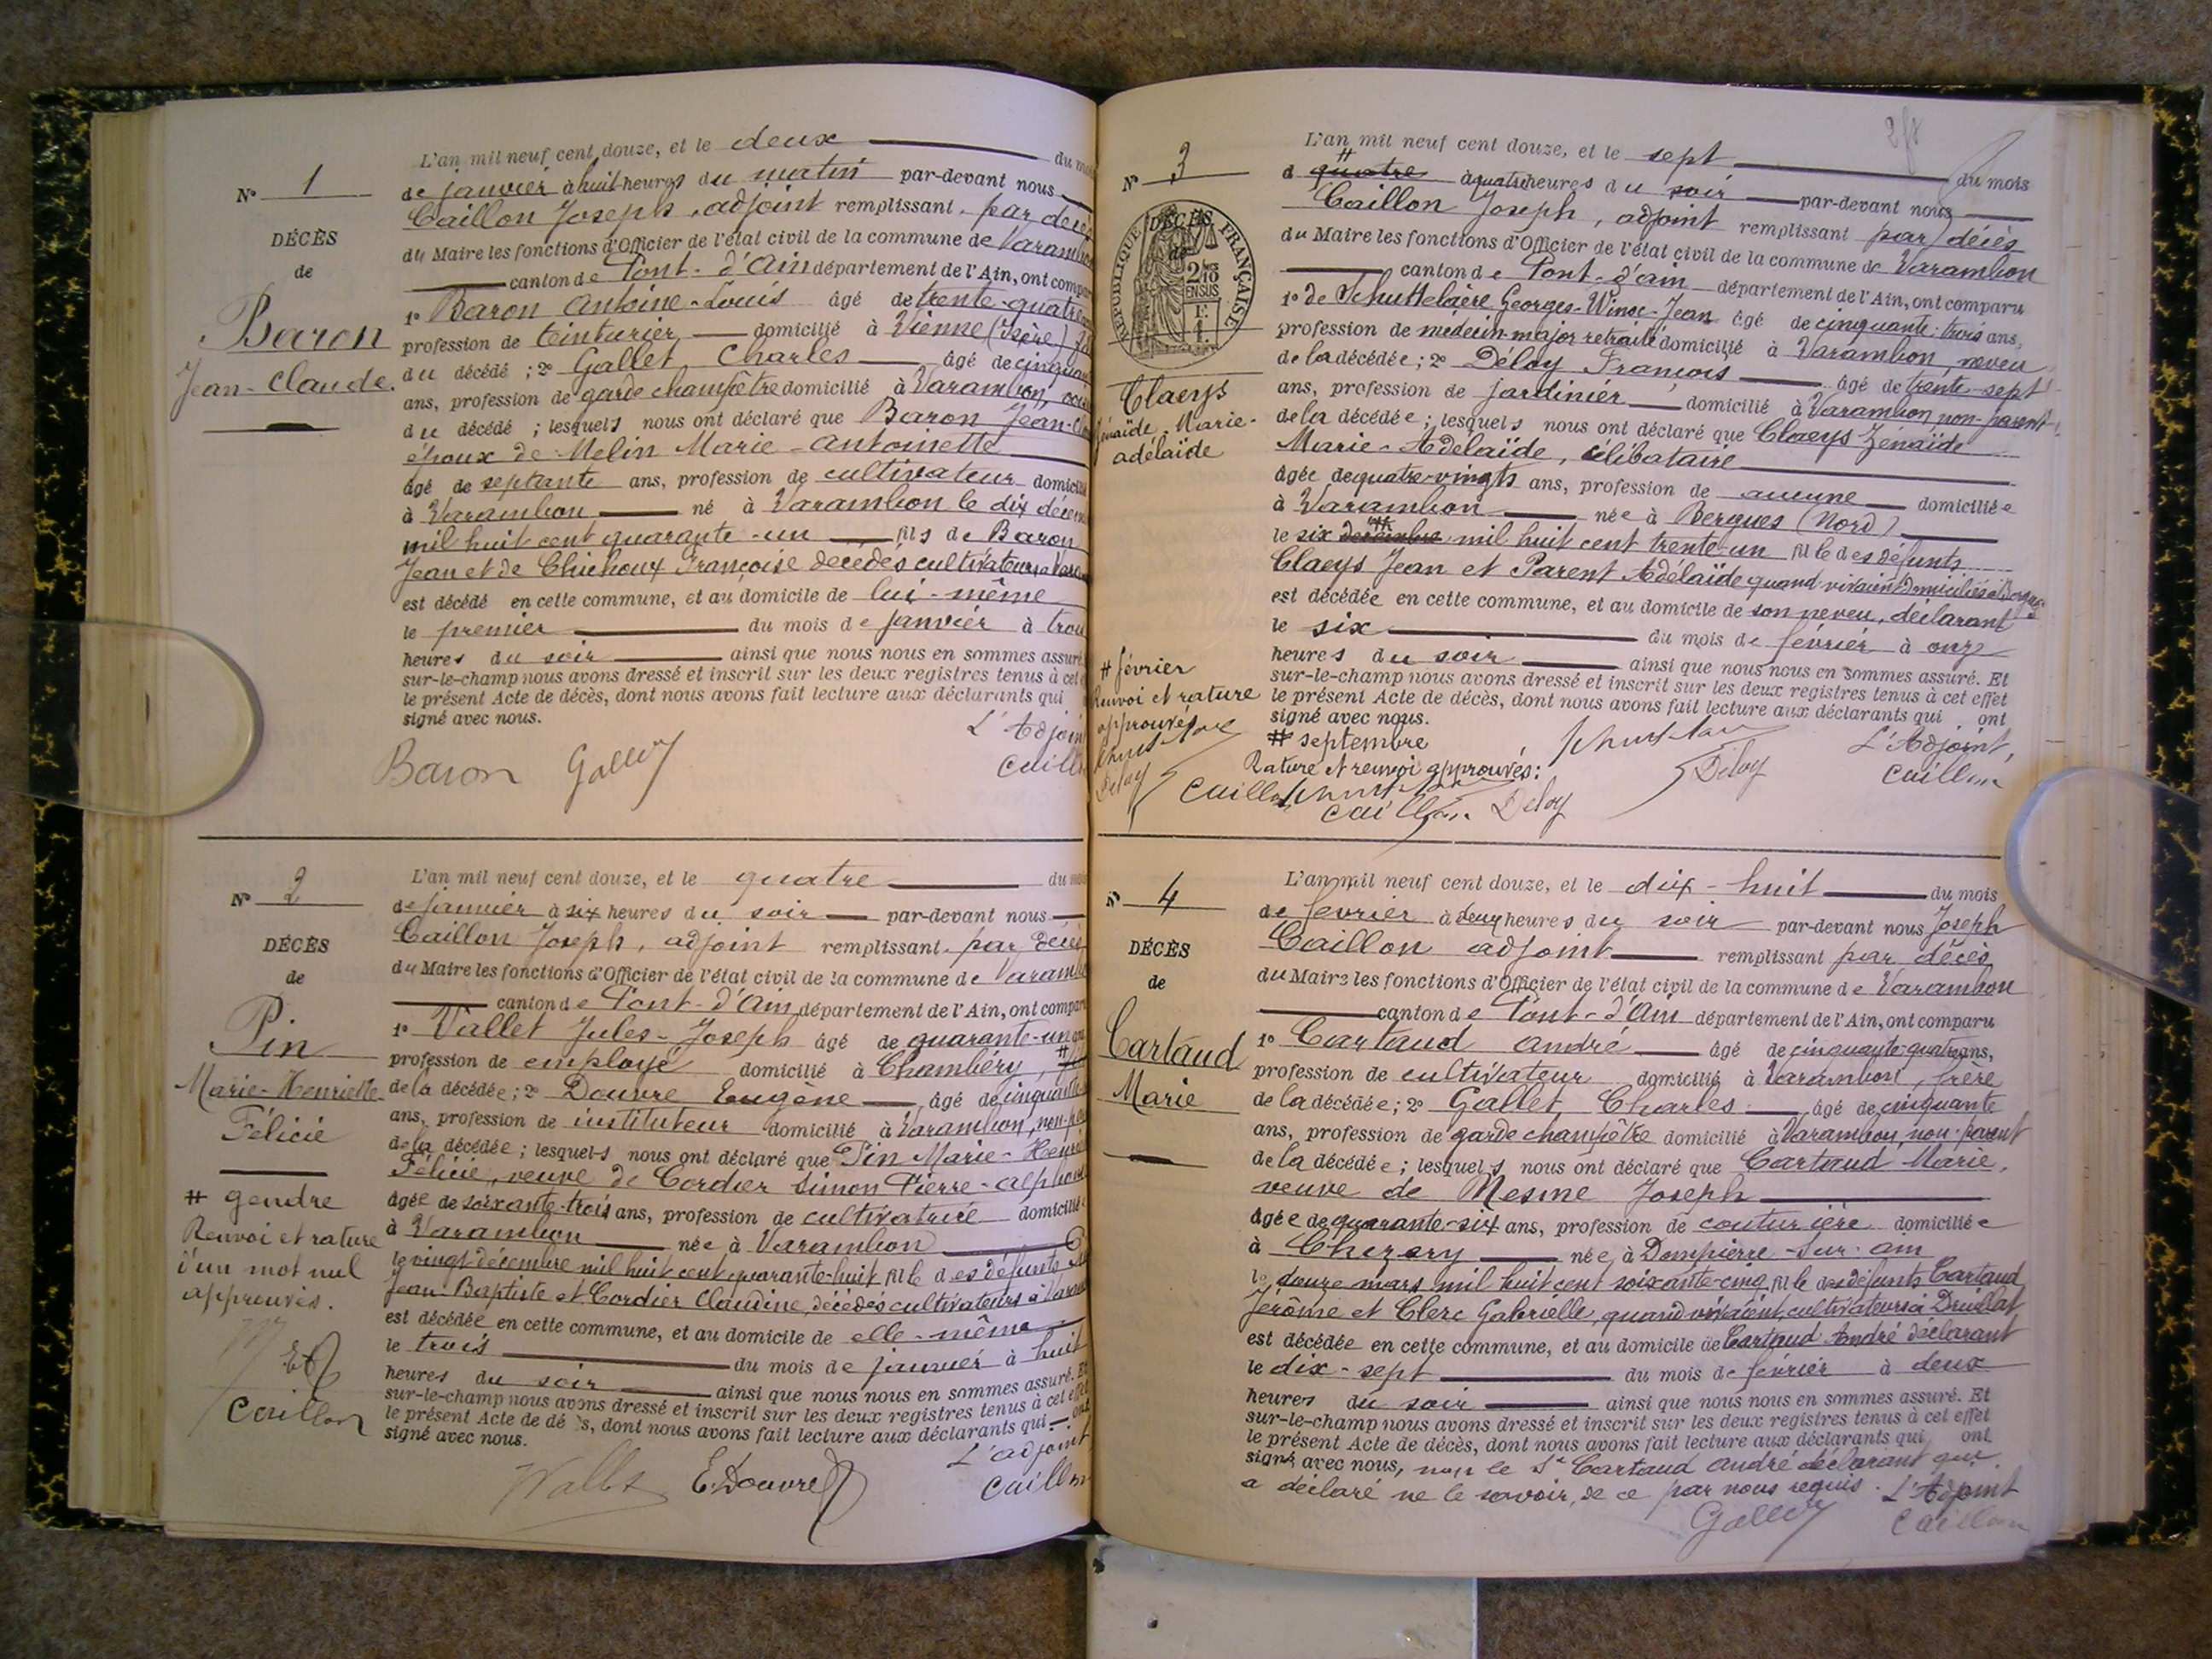 N° 1
DÉCÈS
de
Baron
Jean-Claude.
L'an mil neuf cent douze, et le deux du
de janvier à huit heures du matin par-devant nous
Caillon Joseph, adjoint remplissant par décès
du Maire les fonctions d'Officier de l'état civil de la commune de Varambon
canton de Pont-d'Ain département de l'Ain, ont compa
1° Baron Antoine-Louis âgé de trente-quatre
profession de teinturier domicilié à Vienne (Isère)
du décédé ; 2° Gallet Charles âgé de cinquan
ans, profession de garde champêtre domicilié à Varambon,
du décédé ; lesquels nous ont déclaré que Baron Jean-Cl
époux de Melin Marie-Antoinette
âgé de septante ans, profession de cultivateur domicil
à Varambon né à Varambon le dix décem
mil huit cent quarante-un fils de Baron
Jean et de Chichoux Françoise décédés cultivateurs à Vara
est décédé en cette commune, et au domicile de lui-même
le premier du mois de janvier à trois
heures du soir ainsi que nous nous en sommes assuré.
sur-le-champ nous avons dressé et inscrit sur les deux registres tenus à cet
le présent Acte de décès, dont nous avons fait lecture aux déclarants qui
signé avec nous.
L'Adjoin
Baron Gallet Caill
N° 2
DÉCÈS
de
Pin
Marie-Henriette-
Félicie
# gendre
Renvoi et rature
d'un mot nul
approuvés.
Caillon
L'an mil neuf cent douze, et le quatre du
de janvier à six heures du soir par-devant nous
Caillon Joseph, adjoint remplissant par décès
du Maire les fonctions d'Officier de l'état civil de la commune de Varamb
canton de Pont-d'Ain département de l'Ain, ont compar
1° Vallet Jules-Joseph âgé de quarante-un
profession de employé domicilié à Chambéry, #
de la décédée ; 2° Douvre Eugène âgé de cinquante
ans, profession de instituteur domicilié à Varambon, non-p
de la décédée ; lesquels nous ont déclaré que Pin Marie-Henri
Félicie, veuve de Cordier Simon Pierre-Alphon
âgée de soixante-trois ans, profession de cultivatrice domicilié
à Varambon née à Varambon
le vingt décembre mil huit cent quarante-huit fille des défunts
Jean-Baptiste et Cordier Claudine, décédés cultivateurs à Varam
est décédée en cette commune, et au domicile de elle-même
le trois du mois de janvier à huit
heures du soir ainsi que nous nous en sommes assuré. Et
sur-le-champ nous avons dressé et inscrit sur les deux registres tenus à cet effet
le présent Acte de dé s, dont nous avons fait lecture aux déclarants qui ont
signé avec nous.
L'adjoint
E. Douvre Caillon
N° 3
RÉPUBLIQUE FRANÇAISE
DÉCÈS
de
2/10
EN SUS
Claeys
Zénaïde-Marie-
Adélaïde
# février
Renvoi et rature
approuvés
Deloy
2/8
L'an mil neuf cent douze, et le sept du mois
d # quatre à quatre heures du soir par-devant nous
Caillon Joseph, adjoint remplissant par décès
du Maire les fonctions d'Officier de l'état civil de la commune de Varambon
canton de Pont-d'ain département de l'Ain, ont comparu
1° de Schuttelaère Georges-Winoc-Jean âgé de cinquante-trois ans,
profession de médecin-major retraité domicilié à Varambon, neveu
de la décédée ; 2° Déloy François âgé de trente-sept
ans, profession de jardinier domicilié à Varambon non-parent
de la décédée ; lesquels nous ont déclaré que Claeys Zénaïde
Marie-Adélaïde, célibataire
âgée de quatre-vingts ans, profession de aucune domiciliée
à Varambon née à Bergues (Nord)
le six # décembre mil huit cent trente-un fille des défunts
Claeys Jean et Parent Adélaïde quand vivaient domiciliés à Bergues
est décédée en cette commune, et au domicile de son neveu, déclarant
le six du mois de février à onze
heures du soir ainsi que nous nous en sommes assuré. Et
sur-le-champ nous avons dressé et inscrit sur les deux registres tenus à cet effet
le présent Acte de décès, dont nous avons fait lecture aux déclarants qui ont
signé avec nous.
# septembre
Rature et renvoi approuvés :
L'Adjoint,
Deloy Caillon
Caillon
Caillon Deloy
N° 4
DÉCÈS
de
Cartaud
Marie
L'an mil neuf cent douze, et le dix-huit du mois
de février à deux heures du soir par-devant nous Joseph
Caillon adjoint remplissant par décès
du Maire les fonctions d'Officier de l'état civil de la commune de Varambon
canton de Pont-d'Ain département de l'Ain, ont comparu
1° Cartaud André âgé de cinquante-quatre ans,
profession de cultivateur domicilié à Varambon, frère
de la décédée ; 2° Gallet Charles âgé de cinquante
ans, profession de garde champêtre domicilié à Varambon, non-parent
de la décédée ; lesquels nous ont déclaré que Cartaud Marie,
veuve de Mesme Joseph
âgée de quarante-six ans, profession de couturière domiciliée
à Chezery née à Dompierre-sur-ain
le douze mars mil huit cent soixante-cinq fille des défunts Cartaud
Jérôme et Clerc Gabrielle, quand vivaient cultivateurs à Druillat
est décédée en cette commune, et au domicile de Cartaud André déclarant
le dix-sept du mois de février à deux
heures du soir ainsi que nous nous en sommes assuré. Et
sur-le-champ nous avons dressé et inscrit sur les deux registres tenus à cet effet
le présent Acte de décès, dont nous avons fait lecture aux déclarants qui ont
signé avec nous, non le Sr Cartaud André déclarant qui
a déclaré ne le savoir, de ce par nous requis. L'Adjoint
Gallet Caillon